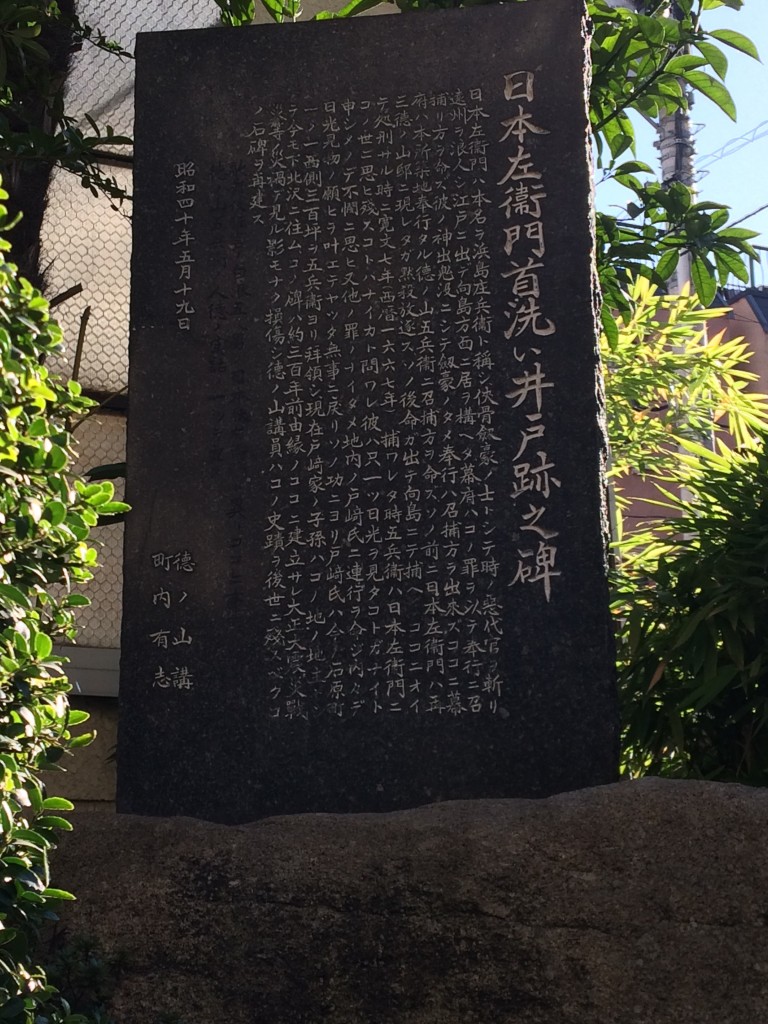 日本左衛門首洗い井戸跡之碑
日本左衛門ハ本名ヲ浜島庄兵衛ト称シ侠骨剣豪ノ士トシテ時ノ悪代官ヲ斬リ
遠州ヲ浪人シ江戸ニ出デ向島方面ニ居ヲ構ヘタ幕府ハコノ罪ヲ以テ奉行ニ召
捕リ方ヲ命ズ彼ノ神出鬼没ニシテ剣豪ノタメ奉行ハ召捕方ヲ出来ズココニ幕
府ハ本所築地奉行タル徳ノ山五兵衛ニ召捕方ヲ命スソノ前ニ日本左衛門ハ再
三徳ノ山邸ニ現レタガ黙殺放逐スソノ後命ガ出テ向島ニテ捕ヘココニオイ
テ処刑サル時ニ寛文七年(西暦一六六七年)捕ワレタ時五兵衛ハ日本左衛門ニ
コノ世ニ思ヒ残スコトハナイカト問ワレ彼ハ只一ツ日光ヲ見タコトガナイト
申シメノデ不憫ニ思ヒ又他ノ罪ノナイタメ地内ノ戸﨑氏ニ連行ヲ命ジ内々デ
日光見物ノ願ヒヲ叶エテヤッタ無事ニ戻リソノ功ニヨリ戸﨑氏ハ今ノ石原町
一ノ一西側三百坪ヲ五兵衛ヨリ拝領シ現在戸﨑家ノ子孫ハコノ地ノ地主
テ今モ下北沢ニ住ムコノ碑ハ約三百年前由縁ノココニ建立サレ大正大震災戦
災等ノ災禍デ見ル影モナク損傷シ徳ノ山講員ハコノ史蹟ヲ後世ニ残スベクコ
ノ石碑ヲ再建ス
昭和四十年五月十九日
徳ノ山講
町内有志